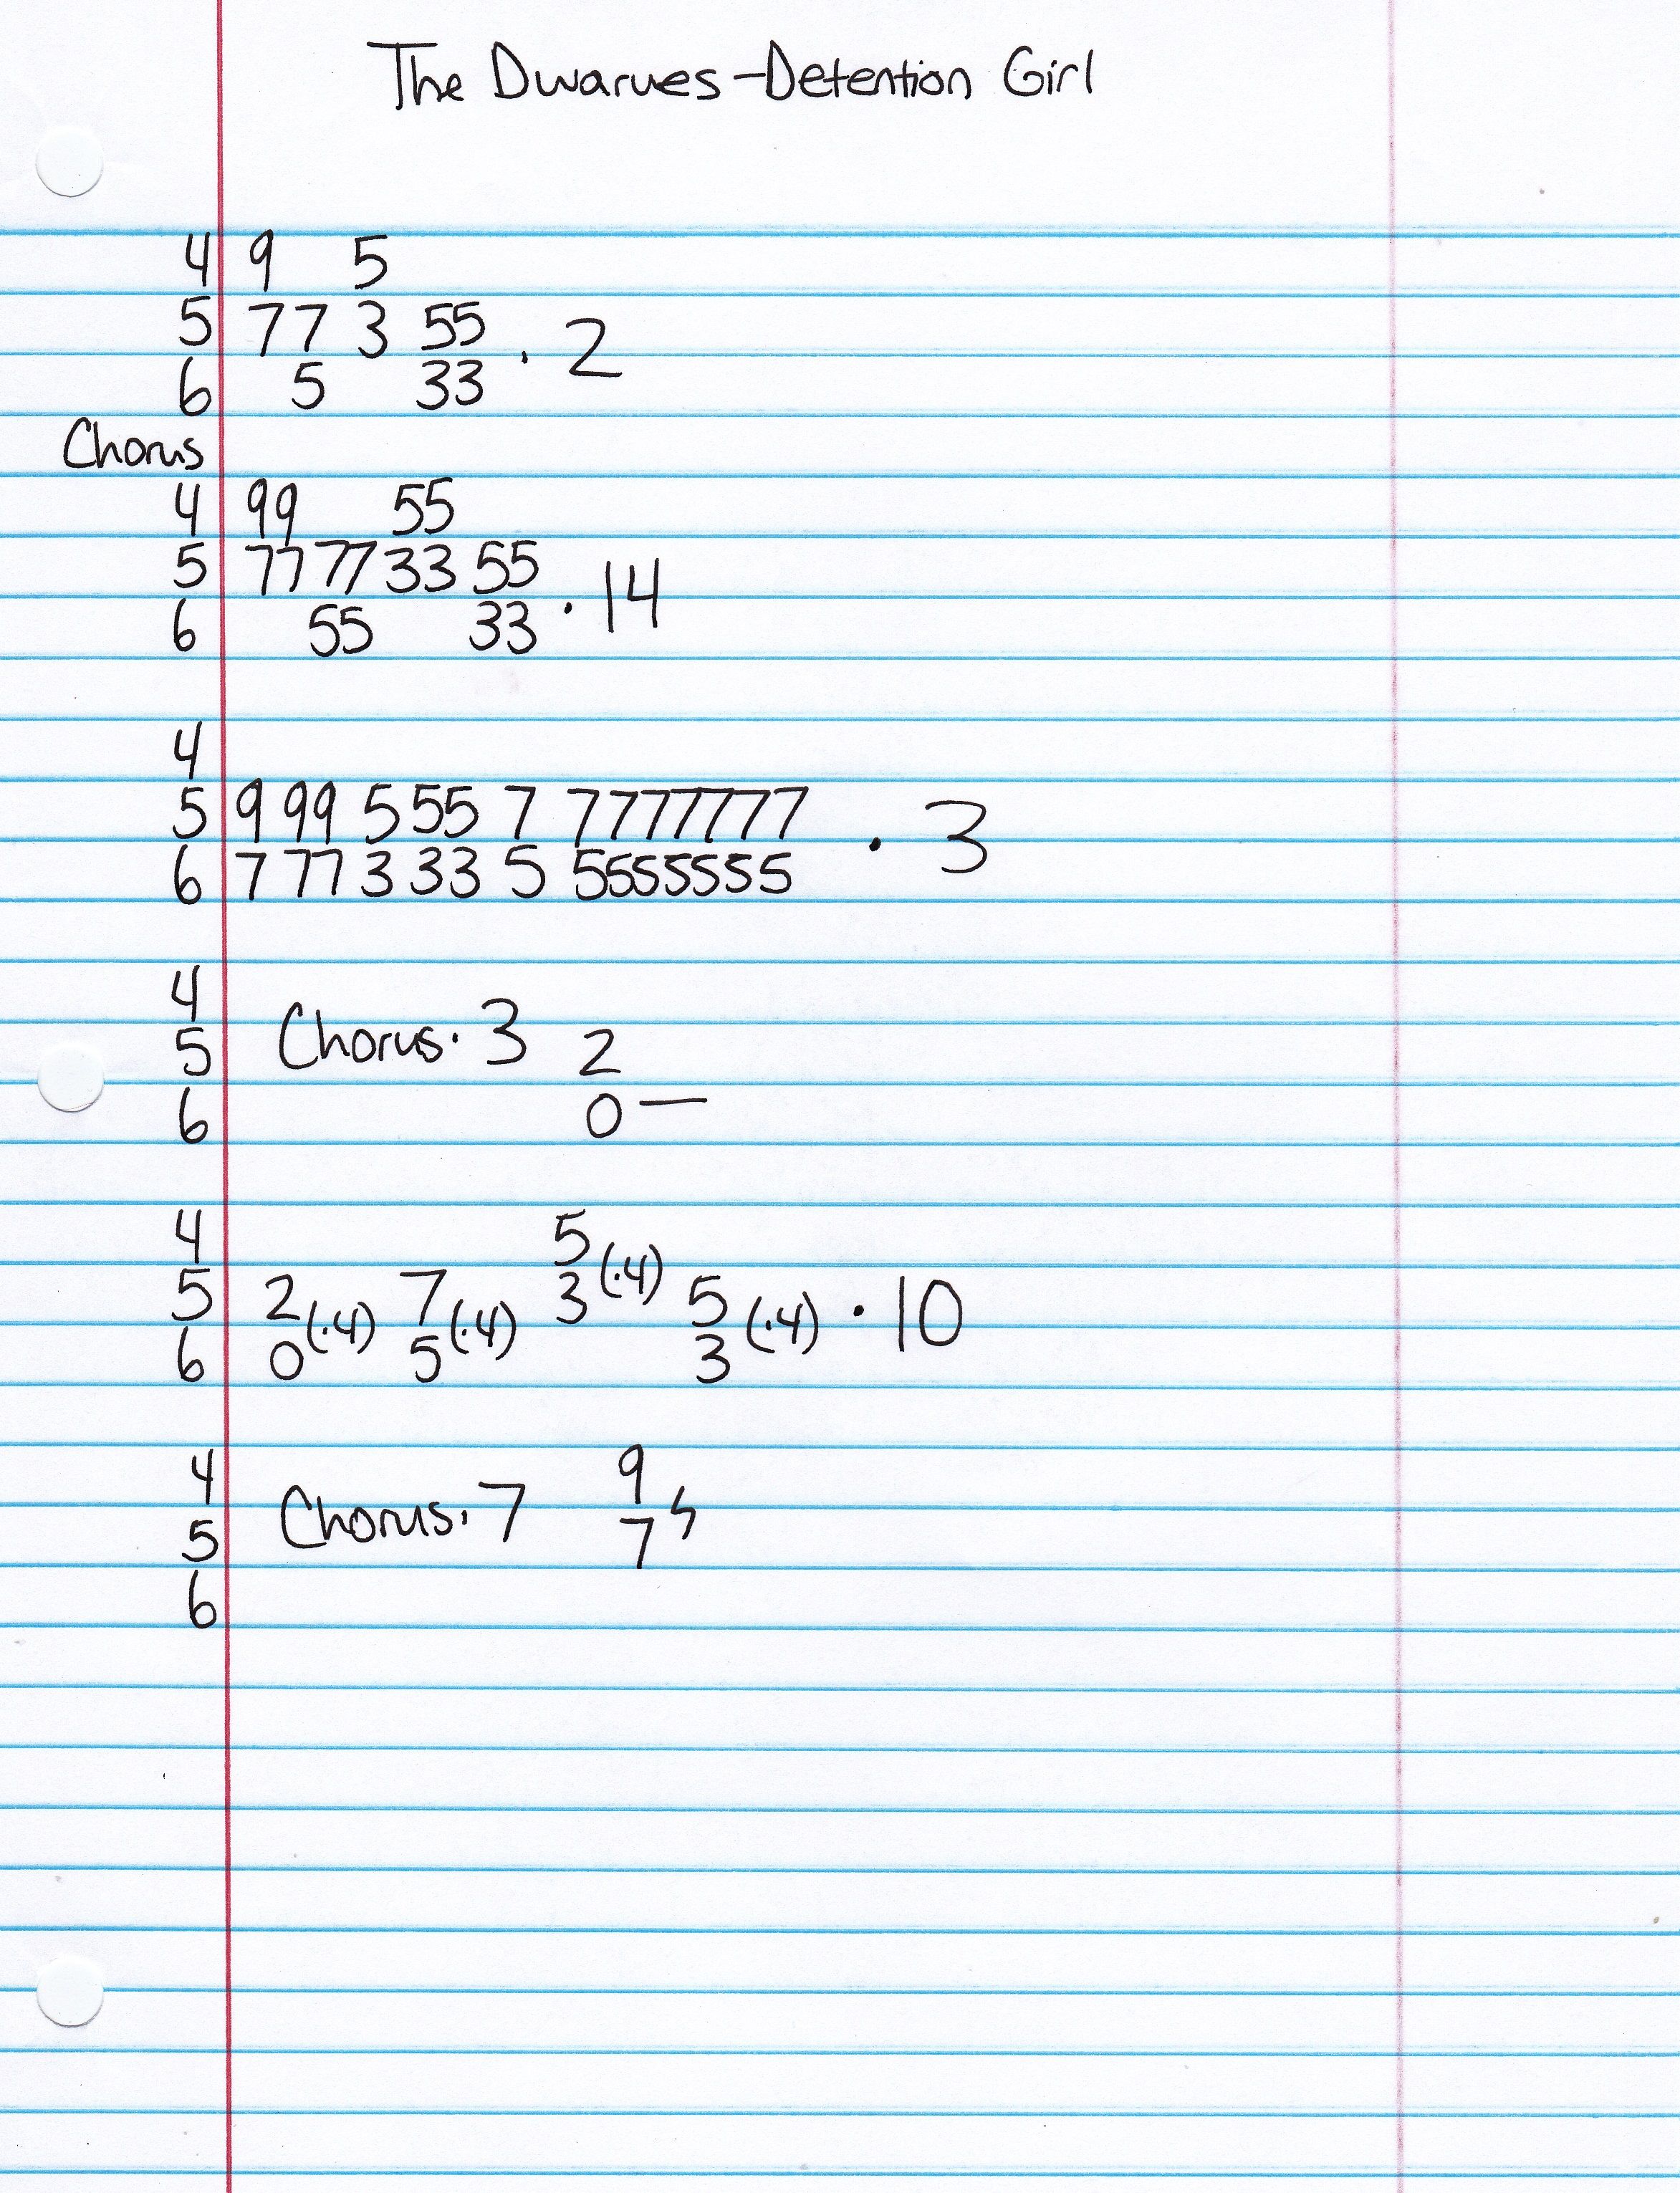 The Dwarves-Detention Girl
4 9 5
5 77 3 55 · 2
6 5 33
Chorus
4 99 55
5 77 77 33 55 · 14
6 55 33
4
5 9 99 5 55 7 7777777 · 3
6 7 77 3 33 5 5555555
4
5 Chorus · 3 2
6 0 —
4 5
5 2 (·4) 7 (·4) 3 (·4) 5 (·4) · 10
6 0 5 3
4 9
5 Chorus · 7 7
6